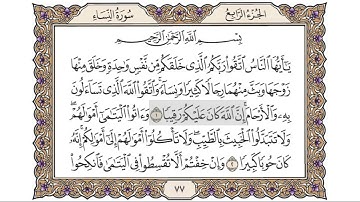 الجزء الرابع
سورة النساء
بسم الله الرحمن الرحيم
يَٰٓأَيُّهَا ٱلنَّاسُ ٱتَّقُوا۟ رَبَّكُمُ ٱلَّذِى خَلَقَكُم مِّن نَّفْسٍ وَٰحِدَةٍ وَخَلَقَ مِنْهَا
زَوْجَهَا وَبَثَّ مِنْهُمَا رِجَالًا كَثِيرًا وَنِسَآءً وَٱتَّقُوا۟ ٱللَّهَ ٱلَّذِى تَسَآءَلُونَ
بِهِۦ وَٱلْأَرْحَامَ إِنَّ ٱللَّهَ كَانَ عَلَيْكُمْ رَقِيبًا ١ وَءَاتُوا۟ ٱلْيَتَٰمَىٰٓ أَمْوَٰلَهُمْ
وَلَا تَتَبَدَّلُوا۟ ٱلْخَبِيثَ بِٱلطَّيِّبِ وَلَا تَأْكُلُوٓا۟ أَمْوَٰلَهُمْ إِلَىٰٓ أَمْوَٰلِكُمْ إِنَّهُۥ
كَانَ حُوبًا كَبِيرًا ٢ وَإِنْ خِفْتُمْ أَلَّا تُقْسِطُوا۟ فِى ٱلْيَتَٰمَىٰ فَٱنكِحُوا۟
٧٧